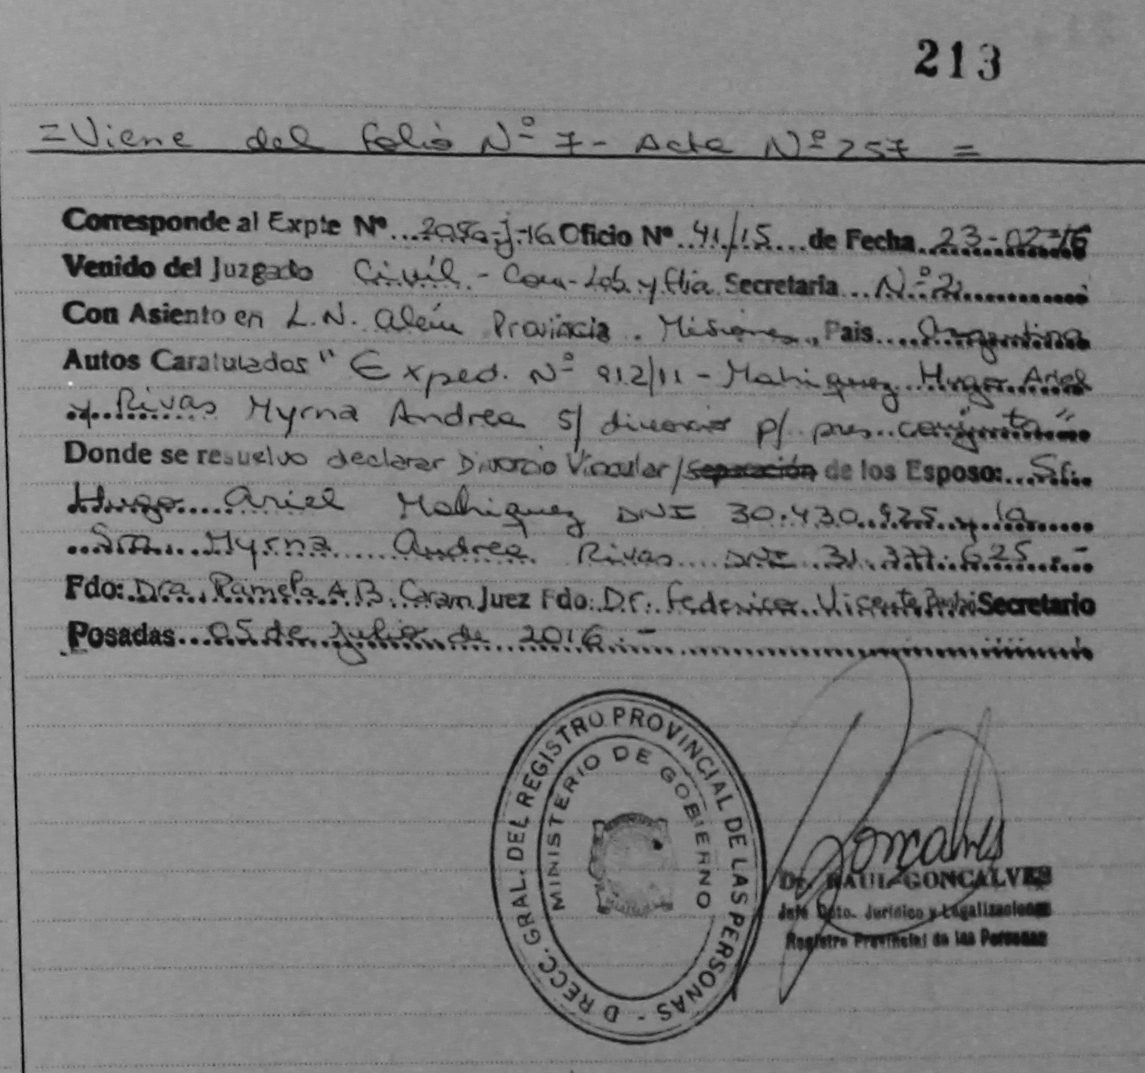 213
=Viene del folio Nº 7- Acta Nº 257 =
Corresponde al Expte Nº ... Oficio Nº 41/15 de Fecha 23-02-16
Venido del Juzgado Civil - Com-Lab. y flia Secretaria Nº 2
Con Asiento en L.N. Alem Provincia Misiones País Argentina
Autos Caratulados " Exped. Nº 912/11 - Mahiquez Hugo Ariel
y Rivas Myrna Andrea s/ divorcio p/ pres. conjunta"
Donde se resuelvo declarar Divorcio Vincular/separación de los Esposo: Sr.
Hugo Ariel Mahiquez DNI 30.430.925 y la
Sra. Myrna Andrea Rivas DNI 31.377.625.-
Fdo: Dra. Pamela A.B. Juez Fdo: Dr. Federico Vicente Secretario
Posadas 05 de Julio de 2016.-
D RECC. GRAL. DEL REGISTRO PROVINCIAL DE LAS PERSONAS -
MINISTERIO DE GOBIERNO
Goncalves
Dr. RAUL GONCALVES
Jefe Dpto. Jurídico y Legalizaciones
Registro Provincial de las Personas